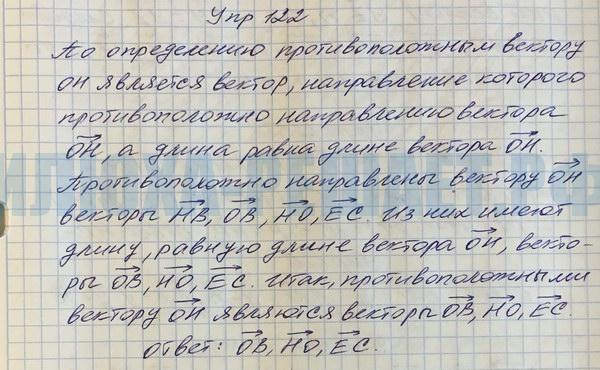 Упр 122
По определению противоположным вектору
он является вектор, направление которого
противоположно направлению вектора
OH, а длина равна длине вектора OH.
Противоположно направлены вектору OH
векторы HB, OB, HO, EC. Из них имеют
длину, равную длине вектора OH, векто-
ры OB, HO, EC. Итак, противоположными
вектору OH являются векторы OB, HO, EC.
Ответ: OB, HO, EC.